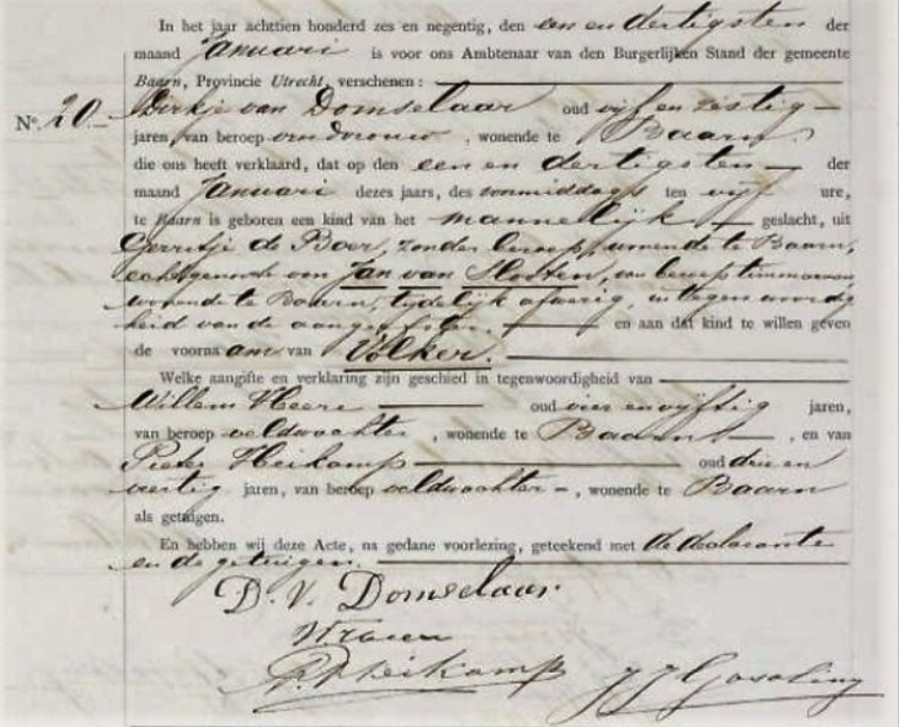 In het jaar achttien honderd zes en negentig, den een en dertigsten der
maand Januari is voor ons Ambtenaar van den Burgerlijken Stand der gemeente
Baarn, Provincie Utrecht, verschenen:
No. 20.- Dirkje van Domselaar oud vijf en zestig
jaren, van beroep vroedvrouw, wonende te Baarn,
die ons heeft verklaard, dat op den een en dertigsten der
maand Januari dezes jaars, des voormiddags ten vijf ure,
te Baarn is geboren een kind van het mannelijk geslacht, uit
Gerritje de Boer, zonder beroep, wonende te Baarn,
echtgenoote van Jan van Slooten, van beroep timmerman,
wonende te Baarn, tijdelijk afwezig, in tegenwoordig
heid van de en aan dat kind te willen geven
de voornaam van Volker.
Welke aangifte en verklaring zijn geschied in tegenwoordigheid van
Willem oud vier en vijftig jaren,
van beroep veldwachter, wonende te Baarn, en van
Pieter Heikamp oud drie en
veertig jaren, van beroep veldwachter, wonende te Baarn
als getuigen.
En hebben wij deze Acte, na gedane voorlezing, geteekend met de declarante
en de getuigen.
D. v. Domselaar
P. Heikamp J J Gosoling